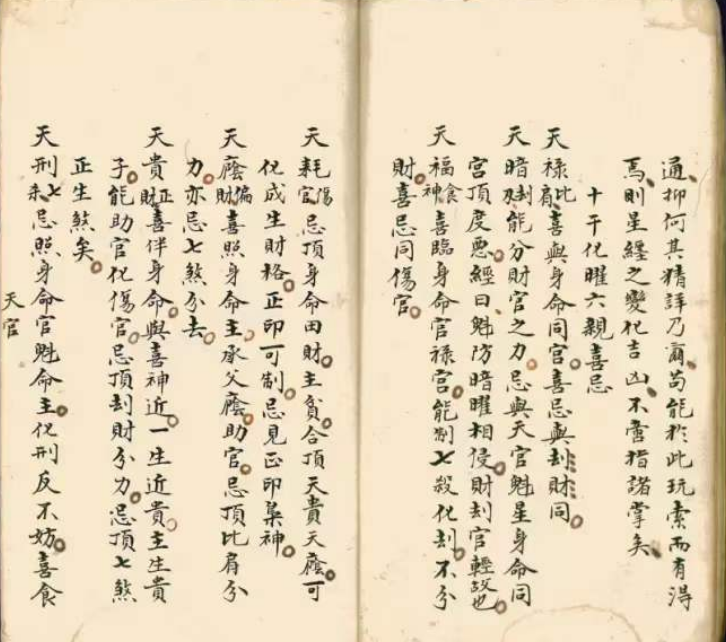 通抑何其精詳乃爾苟能於此玩索而有得
焉則星纏之變化吉凶不啻指諸掌矣
十干化曜六親喜忌
天祿比肩喜與身命同官喜忌與刦財同
天暗刦財能分財官之力忌與天官魁星身命同
宮頂度惡經曰魁防暗曜相侵財刦官輕故也
天福食神喜臨身命官祿宮能制七殺化刦不分
財喜忌同傷官
天耗傷官忌頂身命田財主貧合頂天貴天廕可
化成生財格正印可制忌見正印梟神
天廕偏財喜照身命主承父廕助官忌頂比肩分
力亦忌七煞分去
天貴正財喜伴身命與喜神近一生近貴主生貴
子能助官化傷官忌頂刦財分力忌頂七煞
正生煞矣
天刑七煞忌照身命官魁命主化刑反不妨喜食
天官